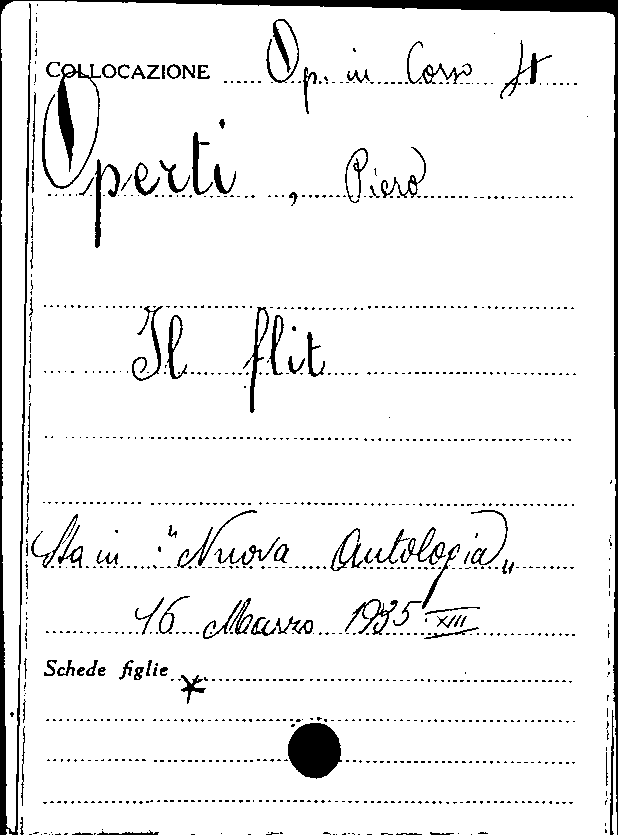 COLLOCAZIONE Op. in Corso St
Operti, Piero
Il flit
Sta in : "Nuova Antologia„
16 Marzo 1935 XIII
Schede figlie *